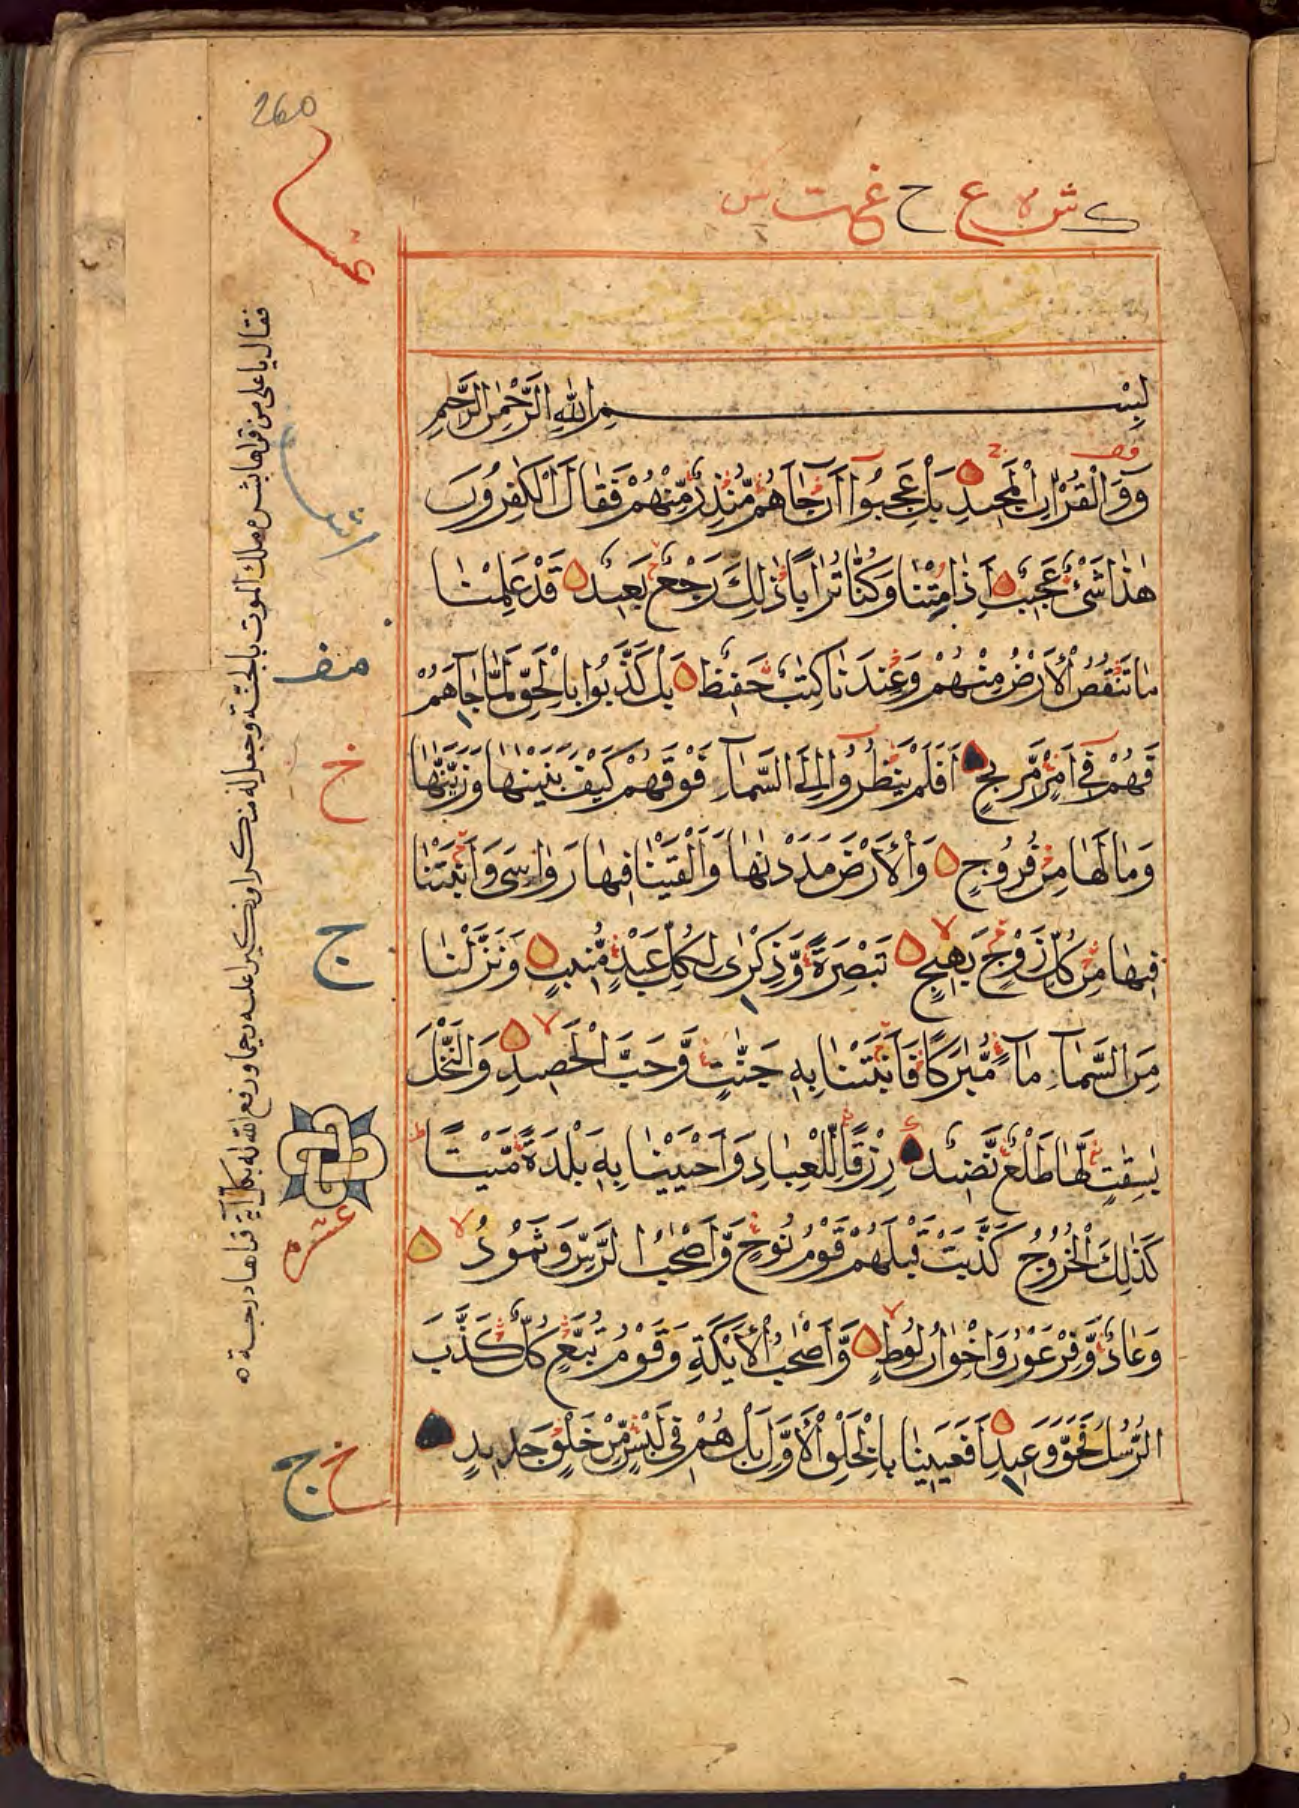 260
بِسْمِ اللّٰهِ الرَّحْمٰنِ الرَّحِيْمِ
قٓ وَالْقُرْاٰنِ الْمَجِيْدِ بَلْ عَجِبُوْا اَنْ جَآءَهُمْ مُّنْذِرٌ مِّنْهُمْ فَقَالَ الْكٰفِرُوْنَ
هٰذَا شَيْءٌ عَجِيْبٌ ءَاِذَا مِتْنَا وَكُنَّا تُرَابًا ذٰلِكَ رَجْعٌ بَعِيْدٌ قَدْ عَلِمْنَا
مَا تَنْقُصُ الْاَرْضُ مِنْهُمْ وَعِنْدَنَا كِتٰبٌ حَفِيْظٌ بَلْ كَذَّبُوْا بِالْحَقِّ لَمَّا جَآءَهُمْ
فَهُمْ فِيْ اَمْرٍ مَّرِيْجٍ اَفَلَمْ يَنْظُرُوْا اِلَى السَّمَآءِ فَوْقَهُمْ كَيْفَ بَنَيْنٰهَا وَزَيَّنّٰهَا
وَمَا لَهَا مِنْ فُرُوْجٍ وَالْاَرْضَ مَدَدْنٰهَا وَاَلْقَيْنَا فِيْهَا رَوَاسِيَ وَاَنْبَتْنَا
فِيْهَا مِنْ كُلِّ زَوْجٍ بَهِيْجٍ تَبْصِرَةً وَّذِكْرٰى لِكُلِّ عَبْدٍ مُّنِيْبٍ وَنَزَّلْنَا
مِنَ السَّمَآءِ مَآءً مُّبٰرَكًا فَاَنْبَتْنَا بِهٖ جَنّٰتٍ وَّحَبَّ الْحَصِيْدِ وَالنَّخْلَ
بٰسِقٰتٍ لَّهَا طَلْعٌ نَّضِيْدٌ رِزْقًا لِّلْعِبَادِ وَاَحْيَيْنَا بِهٖ بَلْدَةً مَّيْتًا
كَذٰلِكَ الْخُرُوْجُ كَذَّبَتْ قَبْلَهُمْ قَوْمُ نُوْحٍ وَّاَصْحٰبُ الرَّسِّ وَثَمُوْدُ
وَعَادٌ وَّفِرْعَوْنُ وَاِخْوَانُ لُوْطٍ وَّاَصْحٰبُ الْاَيْكَةِ وَقَوْمُ تُبَّعٍ كُلٌّ كَذَّبَ
الرُّسُلَ فَحَقَّ وَعِيْدِ اَفَعَيِيْنَا بِالْخَلْقِ الْاَوَّلِ بَلْ هُمْ فِيْ لَبْسٍ مِّنْ خَلْقٍ جَدِيْدٍ
فقال يا على من قراها بشره ملك الموت بالجنة وجعل الله منكرا ونكيرا عليه رحيما ورفع الله له بكل آية قراها درجة
خ
ج
عشر
خ ج